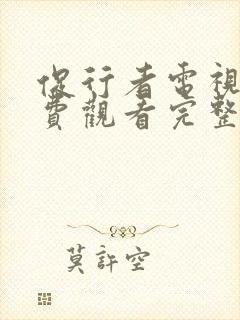 伏行者電視
費觀看完整
莫許空